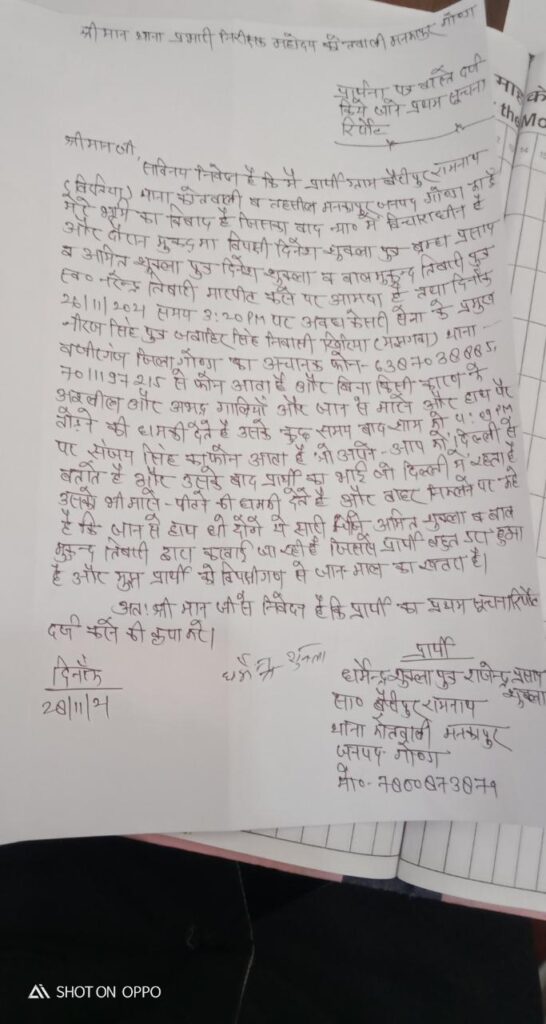 श्रीमान थाना प्रभारी निरीक्षक महोदय कोतवाली मनकापुर गोण्डा
प्रार्थना पत्र वास्ते दर्ज
किये जाने प्रथम सूचना
रिपोर्ट
श्रीमान जी,
सविनय निवेदन है कि मैं प्रार्थी ग्राम बैरीपुर रामनाथ
थाना कोतवाली व तहसील मनकापुर जनपद गोण्डा का है
मेरे भूमि का विवाद है जिसका वाद न्या० में विचाराधीन है
और दौरान मुकदमा विपक्षी दिनेश शुक्ला पुत्र ब्रम्हा प्रसाद
व अमित शुक्ला पुत्र दिनेश शुक्ला व बालमुकुन्द तिवारी पुत्र
स्व० नरेन्द्र तिवारी मारपीट करने पर आमादा है तथा दिनाँक
26/11/2021 समय 3:20 PM पर अवध केसरी सेना के प्रमुख
नीरज सिंह पुत्र जवाहिर सिंह निवासी थाना -
वजीरगंज जिला गोण्डा का अचानक फोन- 6387038885,
7011197215 से फोन आता है और बिना किसी कारण के
अश्लील और अभद्र गालियाँ और जान से मारने और हाथ पैर
तोड़ने की धमकी देते है उसके कुछ समय बाद शाम को 4:09 PM
पर संजय सिंह का फोन आता है जो अपने-आप को दिल्ली से
बताते है और उसके बाद प्रार्थी का भाई जो दिल्ली में रहता है
उसको भी मारने-पीटने की धमकी देते है और बाहर निकलने पर कहे
है कि जान से हाथ धो दोगे ये सारी अमित शुक्ला व बाल
मुकुन्द तिवारी द्वारा करवाई जा रही है जिससे प्रार्थी बहुत डरा हुआ
है और मुझ प्रार्थी को विपक्षीगण से जान माल का खतरा है।
अतः श्रीमान जी से निवेदन है कि प्रार्थी का प्रथम सूचना रिपोर्ट
दर्ज करने की कृपा करें।
दिनाँक
28/11/21
धर्मेन्द्र शुक्ला
प्रार्थी
धर्मेन्द्र शुक्ला पुत्र राजेन्द्र प्रसाद
शुक्ला
सा० बैरीपुर रामनाथ
थाना कोतवाली मनकापुर
जनपद- गोण्डा
मो०- 7860873879
the Mo
SHOT ON OPPO